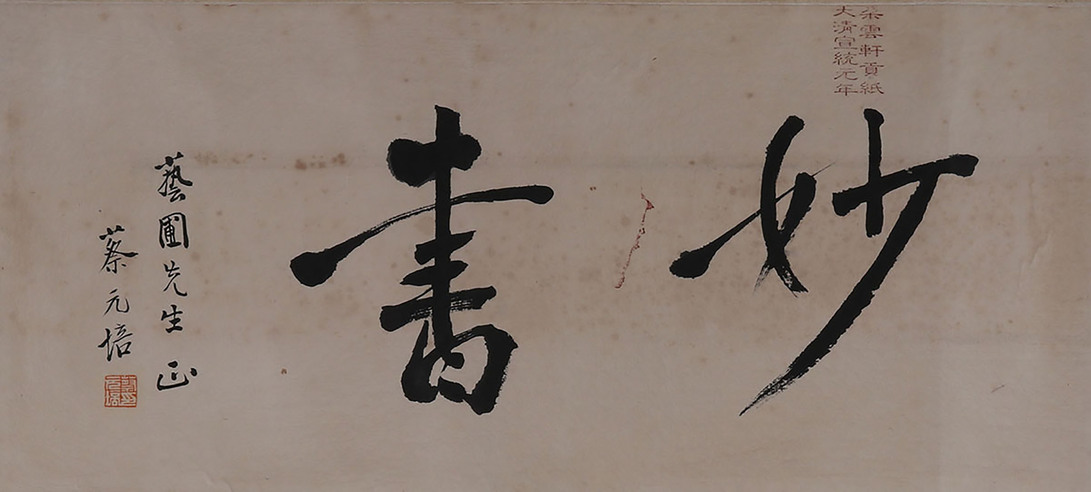 朵雲軒貢紙
大清宣統元年
妙書
藝圃先生正
蔡元培